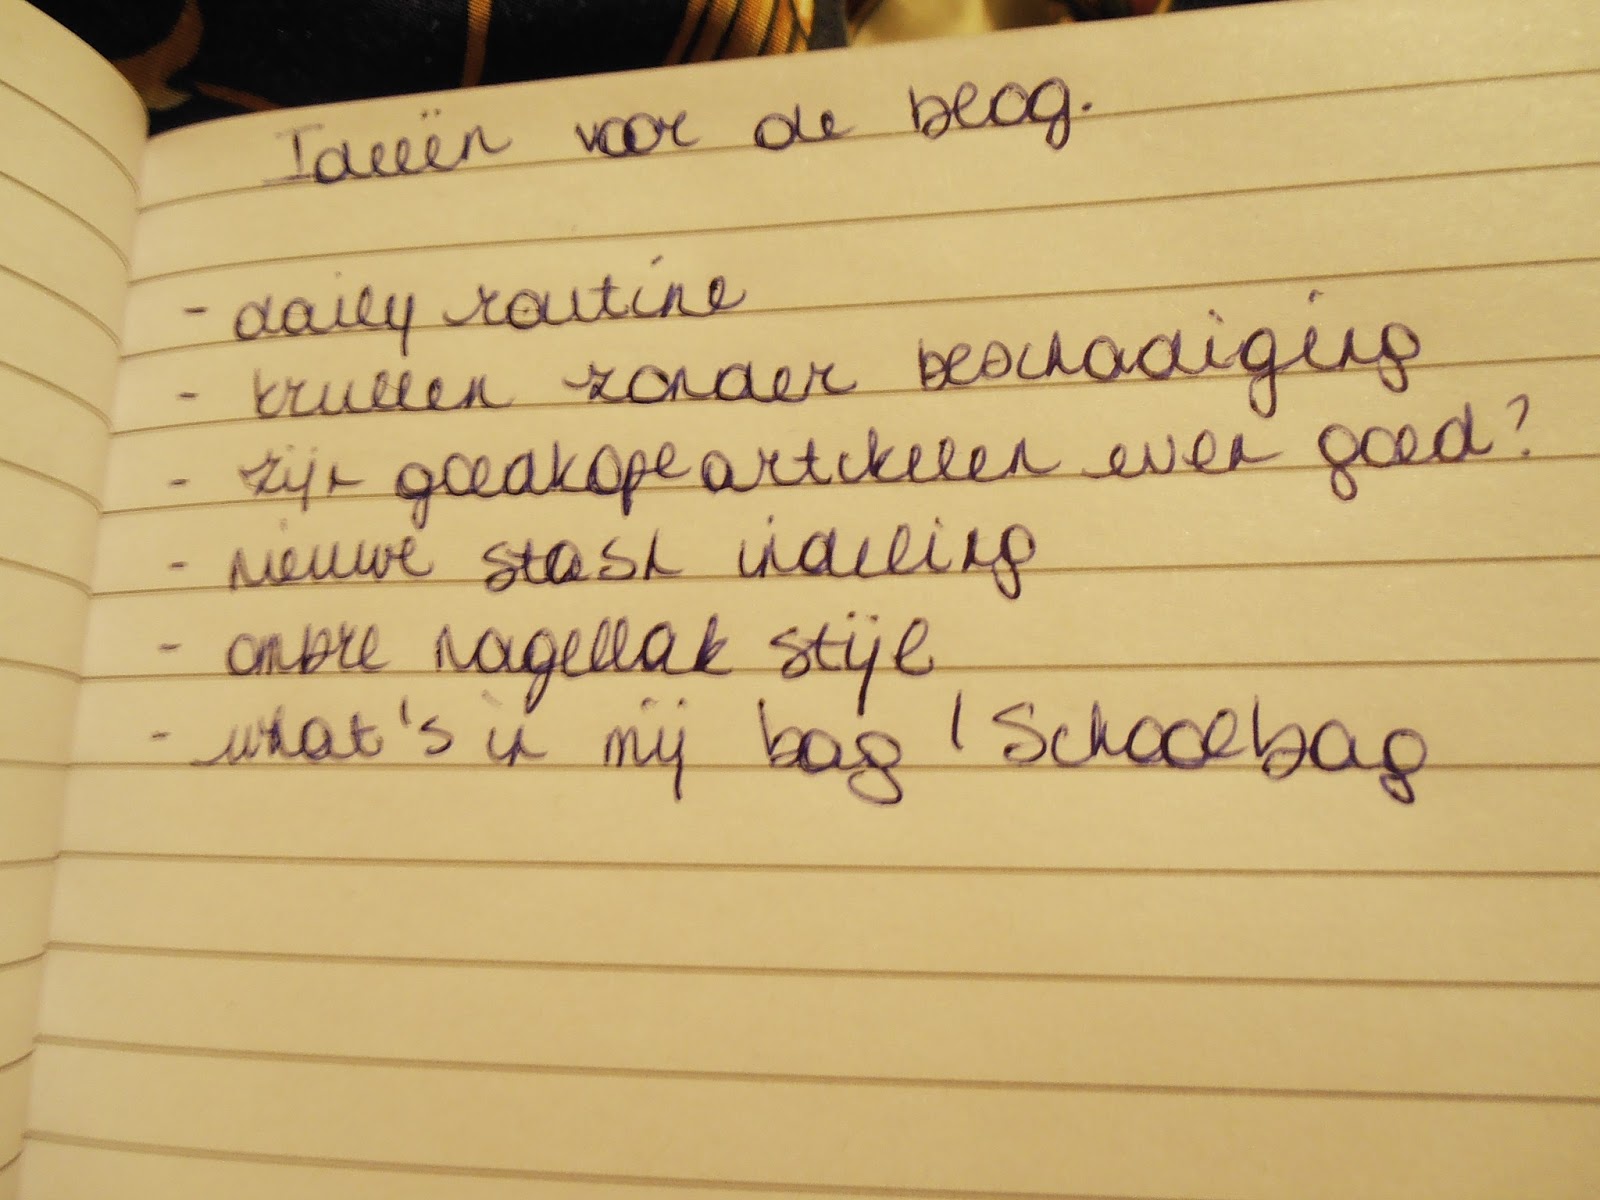 Ideeën voor de blog.
- daily routine
- krullen zonder beschadiging
- zijn goedkope artikelen even goed?
- nieuwe stash indeling
- ombre nagellak stijl
- what's in mij bag / Schoolbag